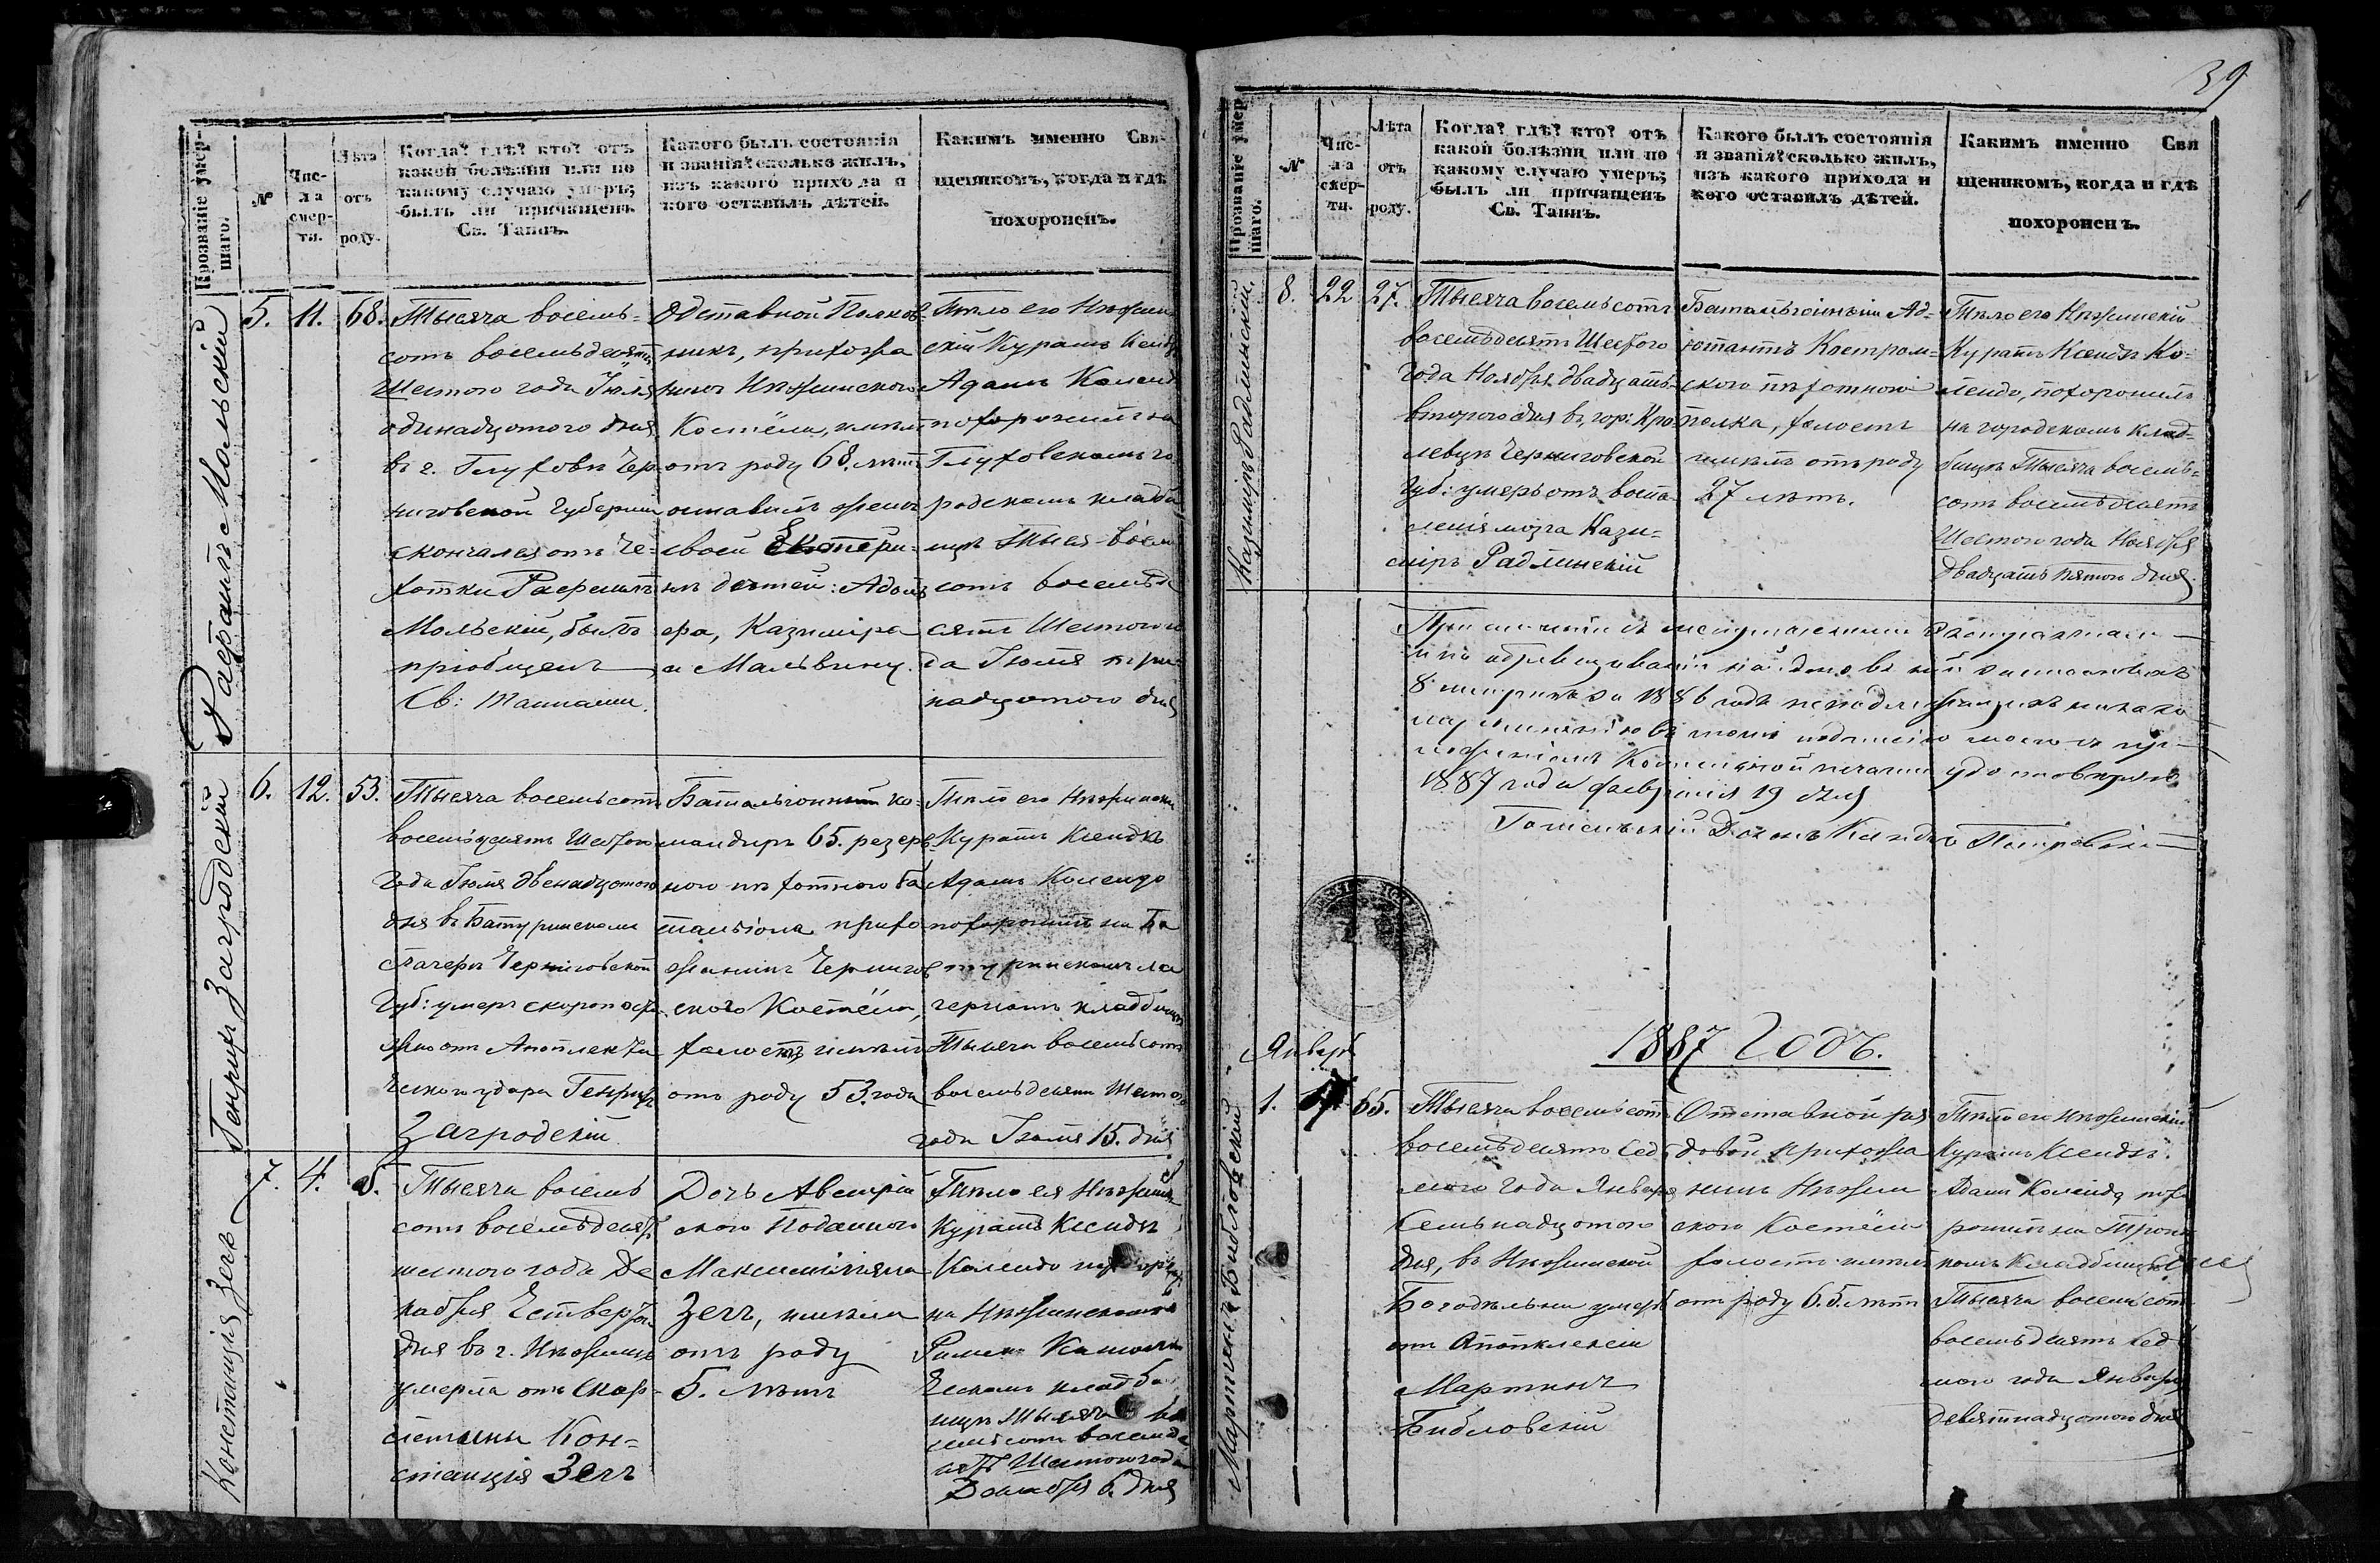 39
Крозваніе умер-
шаго.
№
Чис-
ла
смер-
ти.
Лѣта
отъ
роду.
Когда? гдѣ? кто? отъ
какой болѣзни или по
какому случаю умеръ;
былъ ли причащенъ
Св. Таинъ.
Какого былъ состоянія
и званія? сколько жилъ,
изъ какого прихода и
кого оставилъ дѣтей.
Какимъ именно Свя-
щенникомъ, когда и гдѣ
похороненъ.
Мольскій
5.
11.
68.
Тысяча восемь-
сотъ восемьдесятъ
Шестого года Іюля
одинадцотого дня
въ г. Глуховѣ Чер
ниговской Губерніи
скончался отъ Че-
хотки
Мольскій, былъ
пріобщенъ
Св: Тайнами.
Отставной Полков-
никъ, прихожа
нинъ Нѣжинского
Костёла, имѣлъ
отъ роду 68. лѣтъ
оставилъ жену
свою Екатери-
ну дѣтей: Адоль
фа, Казиміра
и Мальвину.
Тѣло его Нѣжин
скій Куратъ Ксендзъ
Адамъ Коленд
похоронилъ на
Глуховскомъ го
родскомъ кладби
щѣ Тысяч восем
сотъ восемьде
сятъ Шестого го
да Іюля три-
надцотого дня
Генрихъ Загродскій
6.
12.
53.
Тысяча восемьсотъ
восемьдесятъ Шестого
года Іюля двенадцотого
дня въ Батуринскомъ
лагерѣ Черниговской
Губ: умеръ скоропости
жно отъ Апоплекти
ческого удара Генрихъ
Загродскій
Батальіонный ко-
мандиръ 65. резерв
ного пѣхотного ба
тальіона прихо
жанинъ Чернигов
ского Костёла,
холостъ имѣлъ
отъ роду 53. года
Тѣло его Нѣжинскій
Куратъ Ксендзъ
Адамъ Колендо
похоронилъ на Ба
туринскомъ ла
герномъ кладбищѣ
Тысяча восемьсотъ
восемьдесятъ Шестого
года Іюля 15. дня
Констанція Зегъ
7.
4.
5.
Тысяча восемь
сотъ восемьдесятъ
шестого года Де
кабря Четвертого
дня въ г. Нѣжинѣ
умерла отъ Скар-
летины Кон-
станція Зегъ
Дочь Австрій
ского Подданного
Максимиліяна
Зегъ, имѣла
отъ роду
5. лѣтъ
Тѣло ея Нѣжинскій
Куратъ Ксендзъ
Колендо похорон
на Нѣжинскомъ
Римско Католи
ческомъ кладби
щѣ Тысяча во
семьсотъ восемьде
сятъ Шестого года
Декабря 6. дня
Прозваніе умер
шаго.
№
Чис-
ла
смер-
ти.
Лѣта
отъ
роду.
Когда? гдѣ? кто? отъ
какой болѣзни или по
какому случаю умеръ;
былъ ли причащенъ
Св. Таинъ.
Какого былъ состоянія
и званія? сколько жилъ,
изъ какого прихода и
кого оставилъ дѣтей.
Какимъ именно Свя
щенникомъ, когда и гдѣ
похороненъ.
Казиміръ Радлинскій.
8.
22
27.
Тысяча восемьсотъ
восемьдесятъ Шестого
года Ноября двадцать
второго дня въ гор: Кро
левцѣ Черниговской
Губ: умеръ отъ воспа
ленія мозга Кази-
міръ Радлинскій
Батальіонный Ад-
ютантъ Костром-
ского пѣхотного
полка, холостъ
имѣлъ отъ роду
27 лѣтъ.
Тѣло его Нѣжинскій
Куратъ Ксендзъ Ко-
лендо, похоронилъ
на городскомъ клад-
бищѣ Тысяча восемь-
сотъ восемьдесятъ
Шестого года Ноября
двадцать пятого дня
8 за 1886 годъ
1887 года февраля 19 дня
Деканъ Ксендзъ
1887 Годъ.
Январь
Мартинъ Библовскій
1.
17
65.
Тысяча восемьсотъ
восемьдесятъ Сед
мого года Января
Семьнадцотого
дня, въ Нѣжинской
Богодѣльни умеръ
отъ Апоплексіи
Мартинъ
Библовскій
Отставной ря
довой прихожа
нинъ Нѣжин
ского Костёла
холостъ имѣлъ
отъ роду 65. лѣтъ
Тѣло его Нѣжинскій
Куратъ Ксендзъ
Адамъ Колендо похо
ронилъ на
комъ Кладбищѣ
Тысяча восемьсотъ
восемьдесятъ Сед
мого года Января
девятнадцотого дня